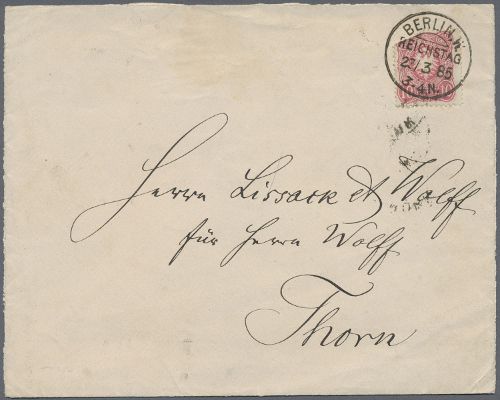 BERLIN.W.
REICHSTAG
23/3.85
3-4.N.
10 10
Herrn Lissack & Wolff
für Herrn Wolff
Thorn